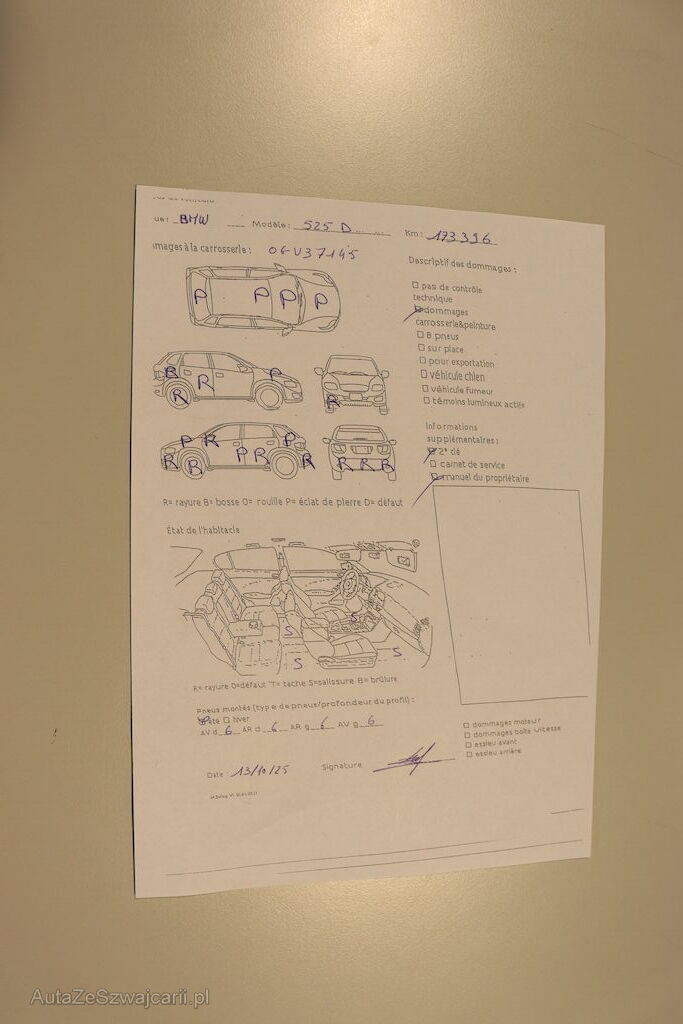 ue: BMW Modèle: 525 D Km: 173396
mages à la carrosserie: 06V37145
Descriptif des dommages:
□ pas de contrôle
technique
dommages
carrosserie&peinture
□ 8 pneus
□ sur place
□ pour exportation
□ véhicule chien
□ véhicule fumeur
□ témoins lumineux actifs
P P P P
R R R P
R
P R P
R R P R R
R R R
Informations
supplémentaires:
2e clé
□ carnet de service
□ manuel du propriétaire
R= rayure B= bosse O= rouille P= éclat de pierre D= défaut
État de l'habitacle
S S S S
R= rayure D=défaut T= tache S=salissure B= brûlure
Pneus montés (type de pneus/profondeur du profil):
été □ hiver
AV d 6 AR d 6 AR g 6 AV g 6
□ dommages moteur
□ dommages boîte vitesse
□ essieu avant
□ essieu arrière
Date: 13/10/25 Signature
AutaZeSzwajcarii.pl